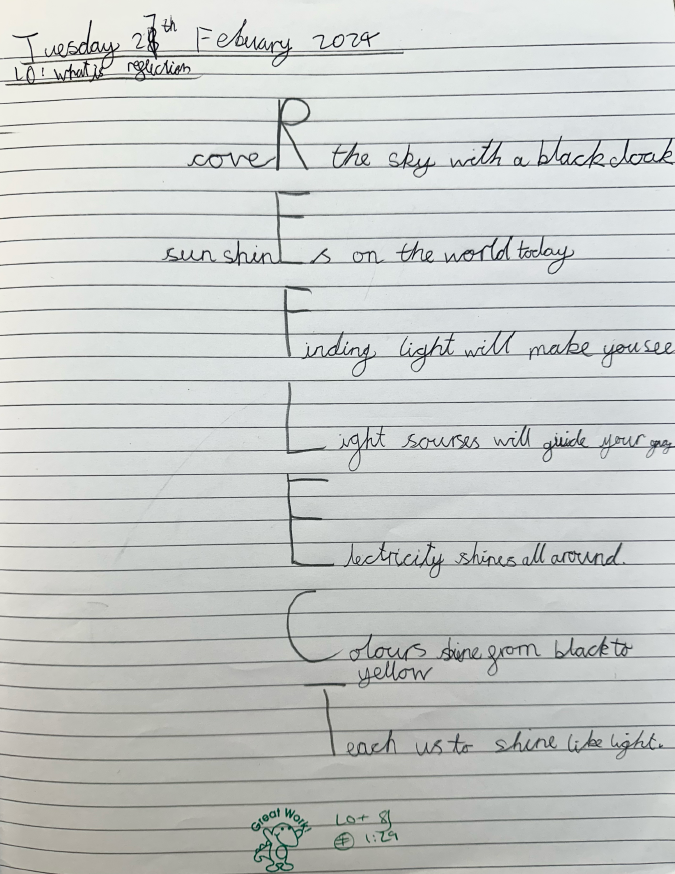 Tuesday 27th Febuary 2024
LO: what is reflection
coveR the sky with a black cloak
sun shinEs on the world today
Finding light will make you see
Light sourses will guide your
Electricity shines all around.
Colours shine from black to
yellow
Teach us to shine like light.
Great Work!
LO+
1:29